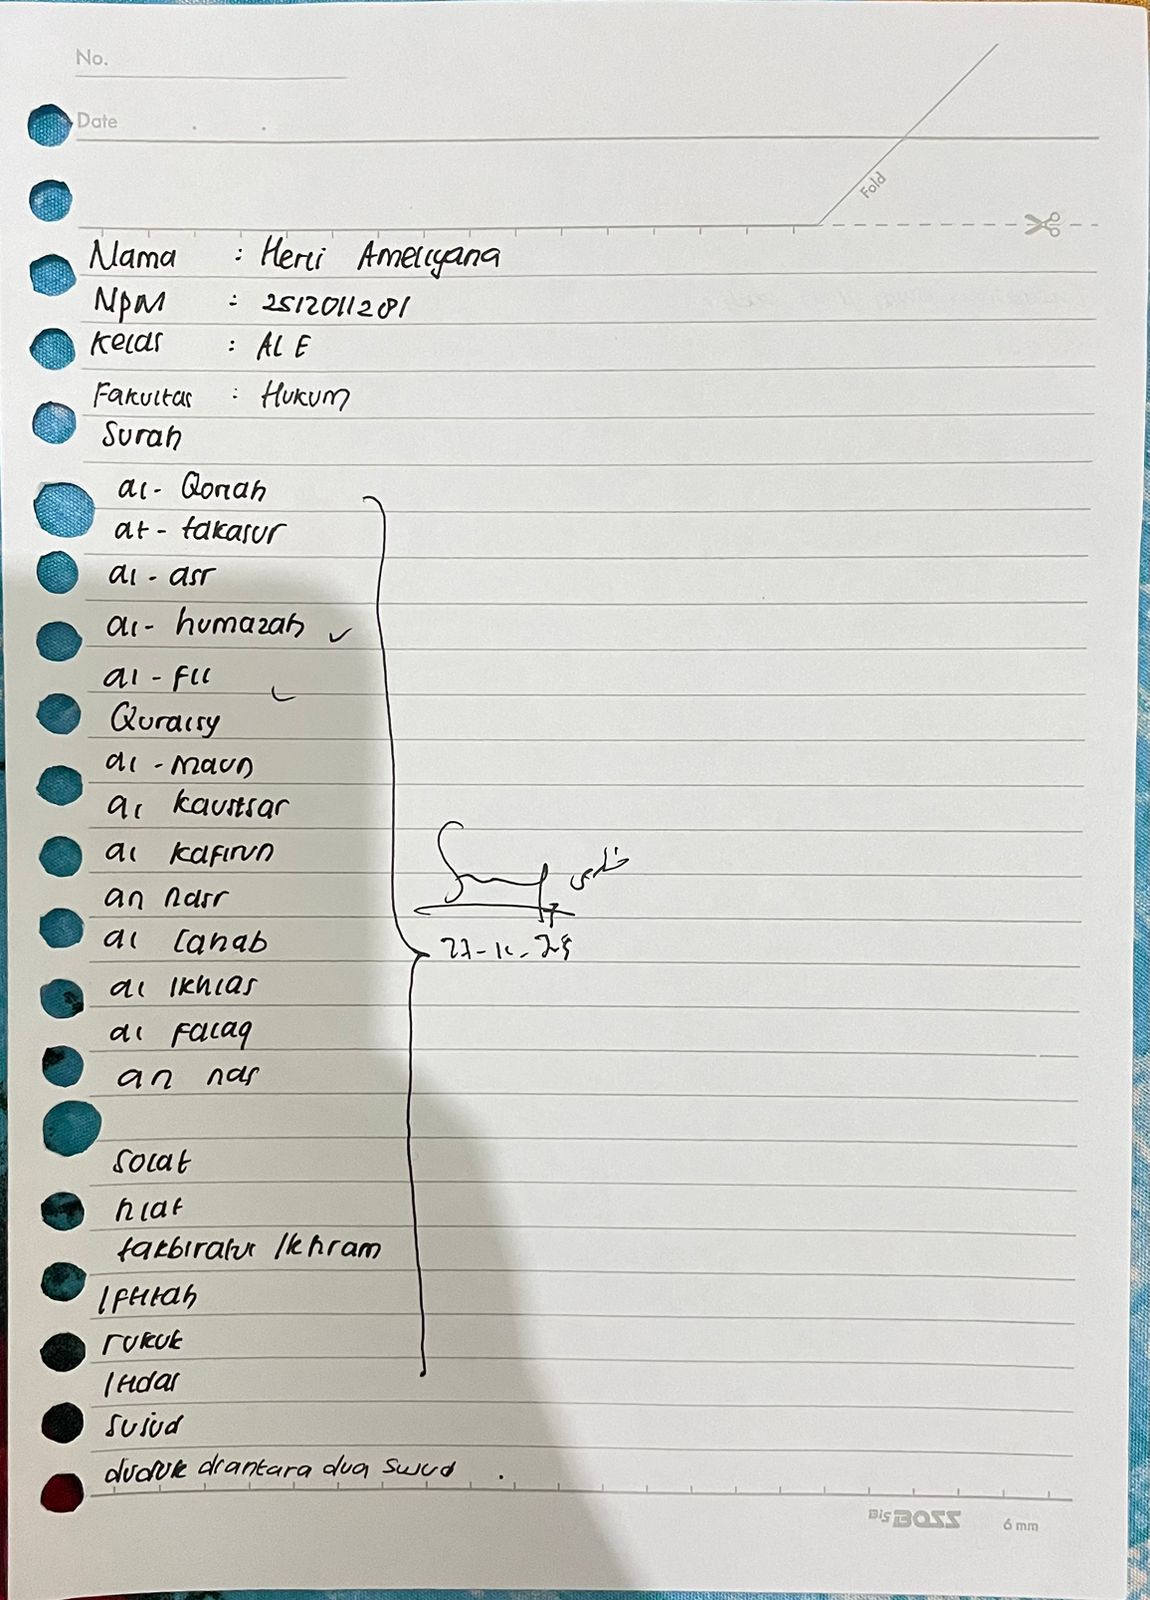 No.
Date
Fold
Nama : Herli Ameliyana
NPM : 2512011281
Kelas : AL E
Fakultas : Hukum
Surah
al - Qoriah
at - takasur
al - asr
al - humazah ✓
al - Fil ✓
Quraisy
al - maun
al kaustsar
al kafirun
an nasr
al lahab
al Ikhlas
al Falaq
an nas
Solat
niat
takbiratur Ikhram
Iftitah
rukuk
Itidal
Sujud
duduk diantara dua Sujud .
Big BOSS 6 mm